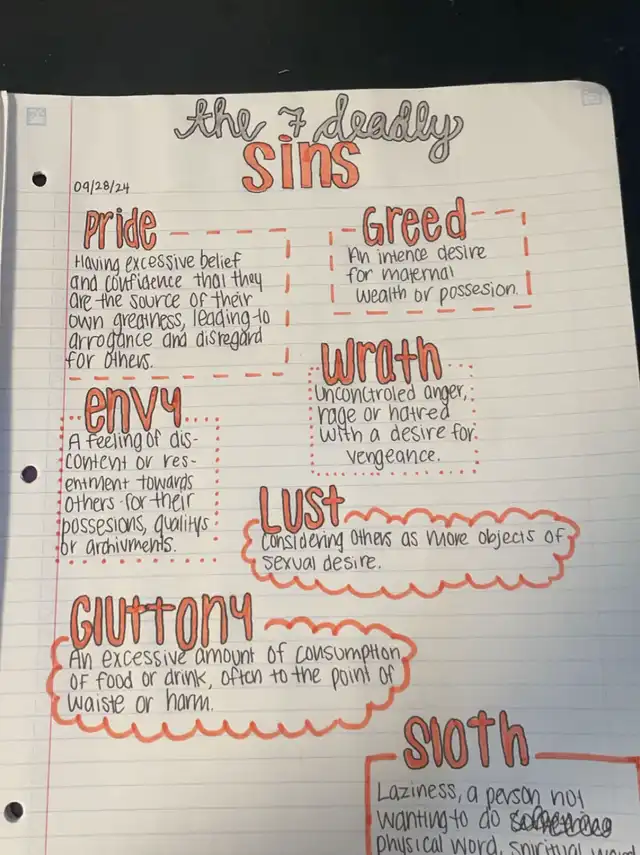 the 7 deadly
sins
09/28/24
Pride
Having excessive belief
and confidence that they
are the source of their
own greatness, leading to
arrogance and disregard
for others.
Greed
An intence desire
for maternal
wealth or possesion.
Wrath
Uncontroled anger,
rage or hatred
with a desire for
vengeance.
Envy
A feeling of dis-
content or res-
entment towards
others for their
possesions, qualitys
or archivments.
Lust
Considering others as more objects of
sexual desire.
Gluttony
An excessive amount of consumption
of food or drink, often to the point of
waiste or harm.
Sloth
Laziness, a person not
wanting to do
physical word, spiritual word